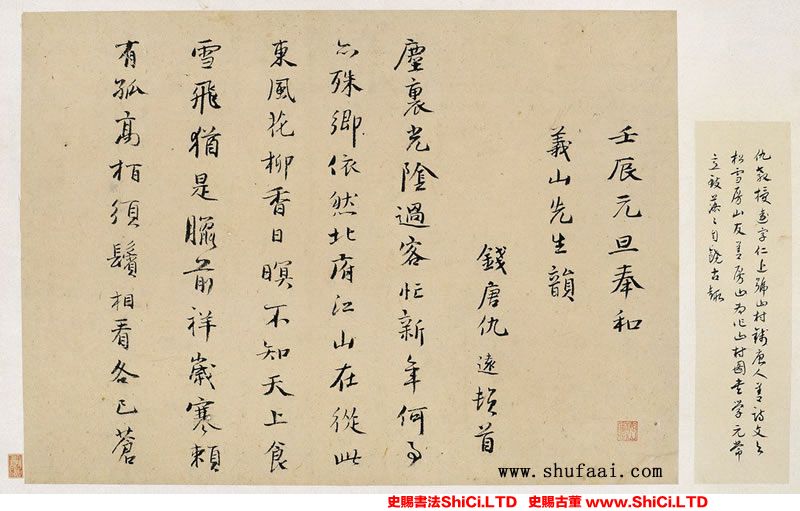 壬辰元旦奉和
義山先生韻
錢唐仇遠頓首
塵裏光陰過客忙新年何
殊卿依然北府江山在從此
東風花柳香日暝不知天上食
雪飛猶是臘前祥歲寒賴
有孤高栢須鬢相看各已蒼
仇教授遠字仁上號山村錢唐人善詩文
松雪房山友善房山為作山村圖書學元常
古
www.shufaai.com
史賜書法ShiCi.LTD 史賜古董 www.ShiCi.LTD